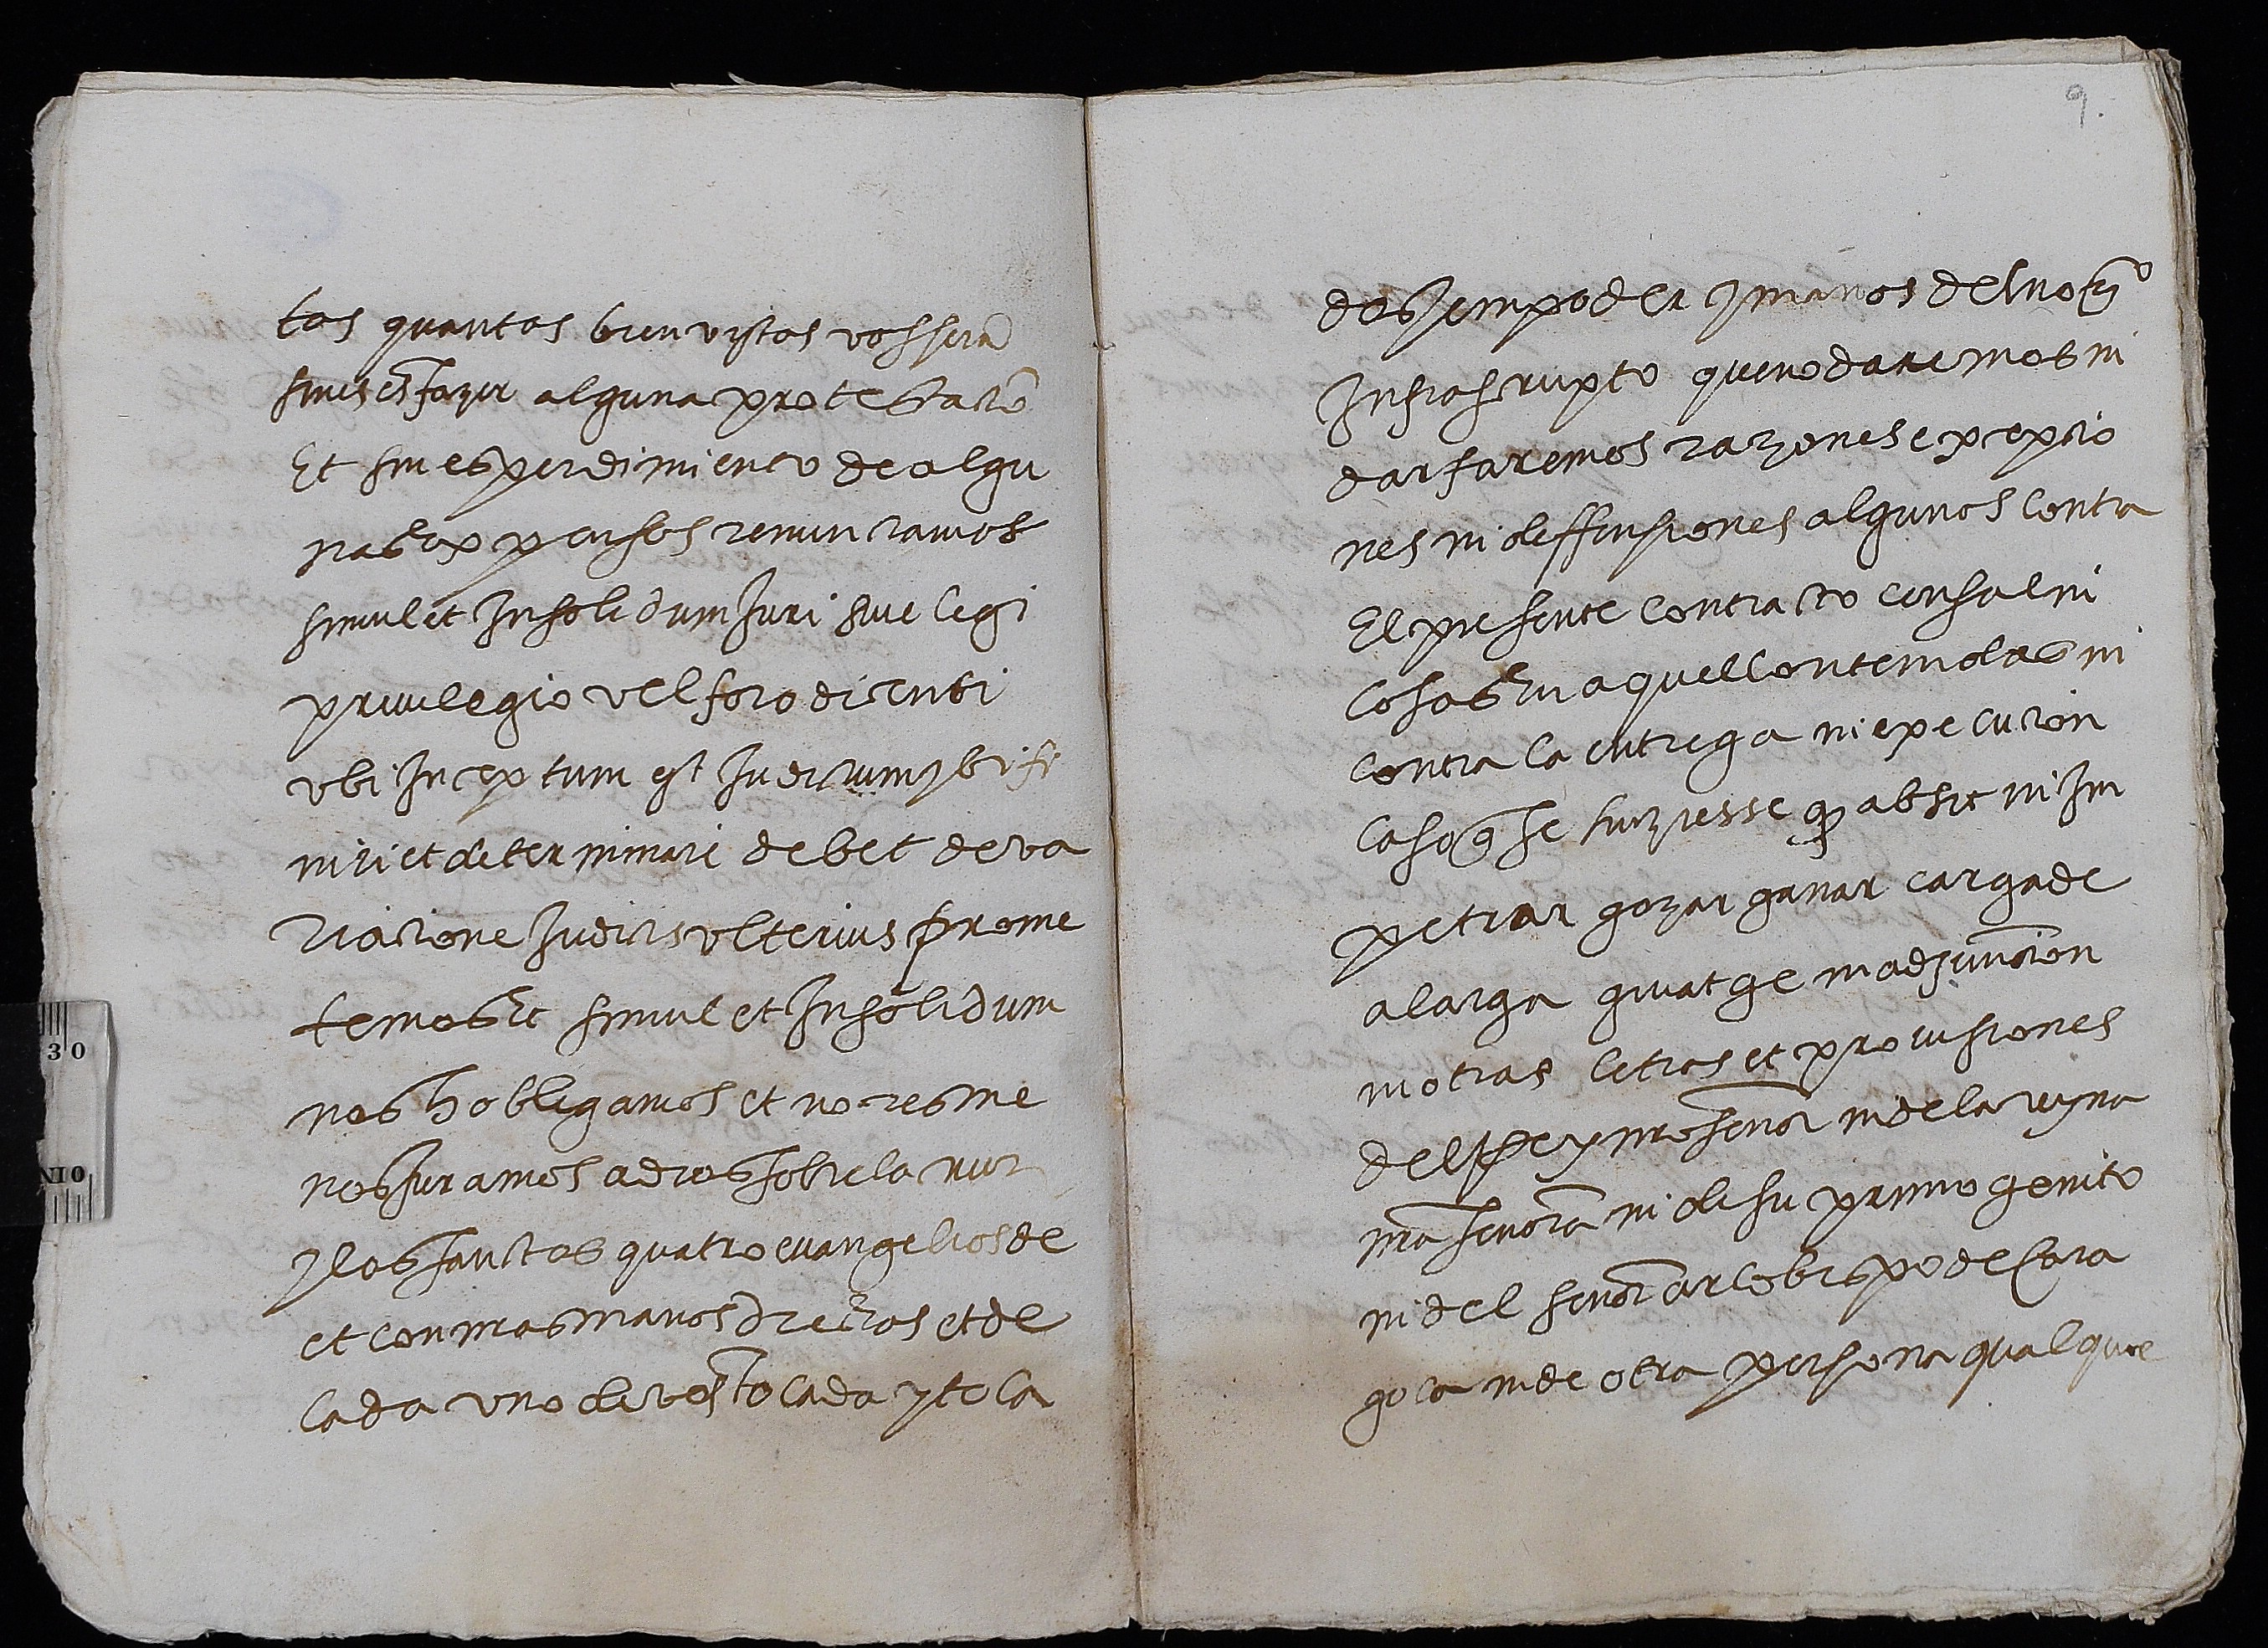 tas quantas bien vistas vos sera
sines es fazer alguna protestacio
Et sin esperdimiento de algu
nas expensas renunciamos
simul et Insolidum Juri sive legi
privilegio vel foro dicenti
ubi Inceptum est Judicium ybi fi
niri et determinari debet de va
riacione Judicis ulterius prome
temos Et simul et Insolidum
nos hobligamos et no res me
nos Juramos a dios sobre la cruz
y los sanctos quatro evangelios de
et con nras manos drechas et de
cada uno de nos tocada y toca
9.
dos Jem poder y manos del not.º
Infrascripto que no daremos ni
dar faremos razones excepcio
nes ni deffensiones algunos contra
El presente contracto censal ni
cosas En aquel contenidas ni
contra la entrega ni execucion
caso q se hiziesse qd absit ni Im
petrar gozar ganar carga de
alarga guiatge ni adjunccion
ni otras letras et provisiones
del Rey nro senor ni de la reyna
nra senora ni de su primogenito
ni del senor arcobispo de Cara
goca ni de otra persona qualquie